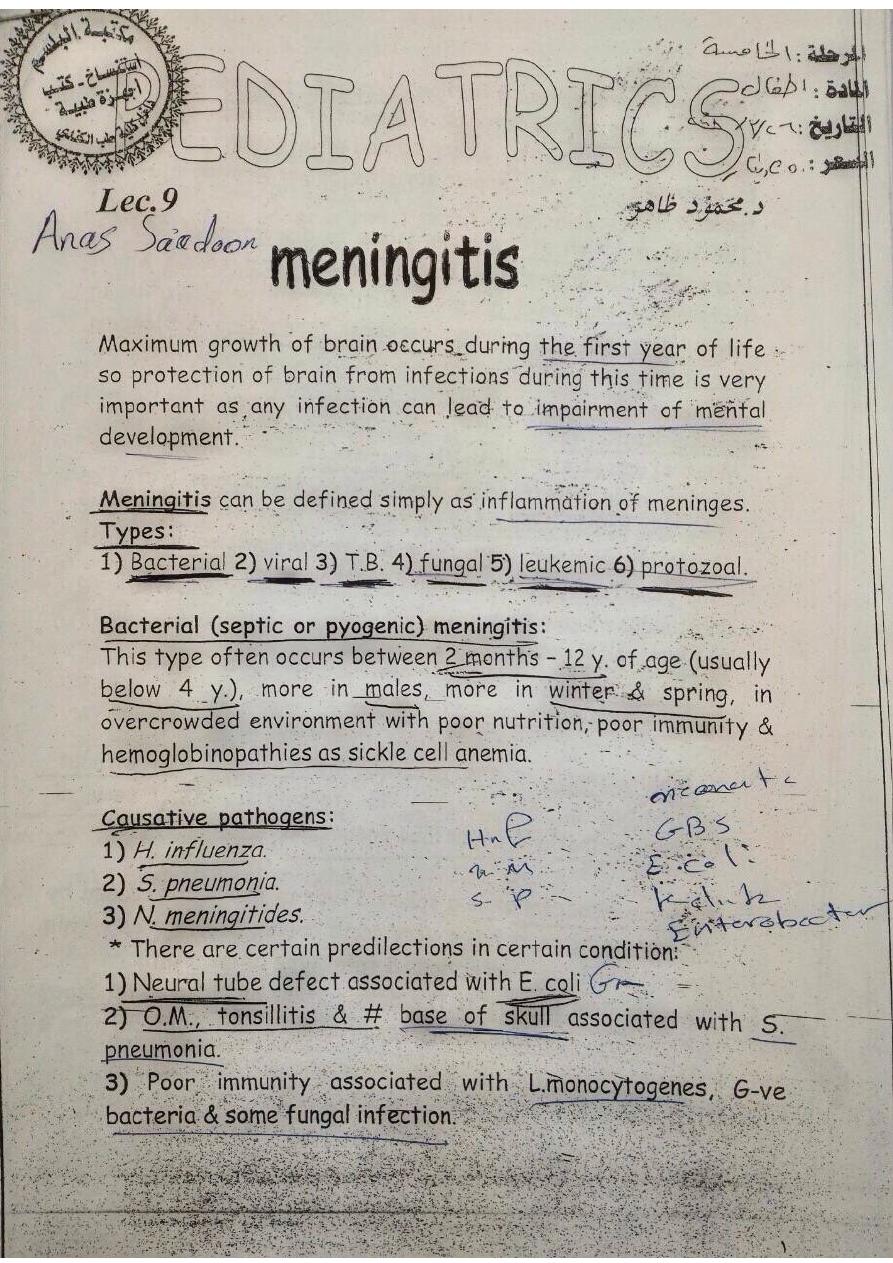 مكتبة البلسم
استنساخ - كتب
اجهزة طبية
PEDIATRICS
المرحلة : الخامسة
المادة : اطفال
التاريخ :
السعر :
Lec.9
د.محمود ظاهر
Anas Saadoon
meningitis
Maximum growth of brain occurs during the first year of life
so protection of brain from infections during this time is very
important as any infection can lead to impairment of mental
development.
Meningitis can be defined simply as inflammation of meninges.
Types:
1) Bacterial 2) viral 3) T.B. 4) fungal 5) leukemic 6) protozoal.
Bacterial (septic or pyogenic) meningitis:
This type often occurs between 2 months - 12 y. of age (usually
below 4 y.), more in males, more in winter & spring, in
overcrowded environment with poor nutrition, poor immunity &
hemoglobinopathies as sickle cell anemia.
Causative pathogens:
1) H. influenza.
GBS
2) S. pneumonia.
E. coli
3) N. meningitides.
Enterobacter
* There are certain predilections in certain condition:
1) Neural tube defect associated with E. coli
2) O.M., tonsillitis & # base of skull associated with S.
pneumonia.
3) Poor immunity associated with L.monocytogenes, G-ve
bacteria & some fungal infection.
١